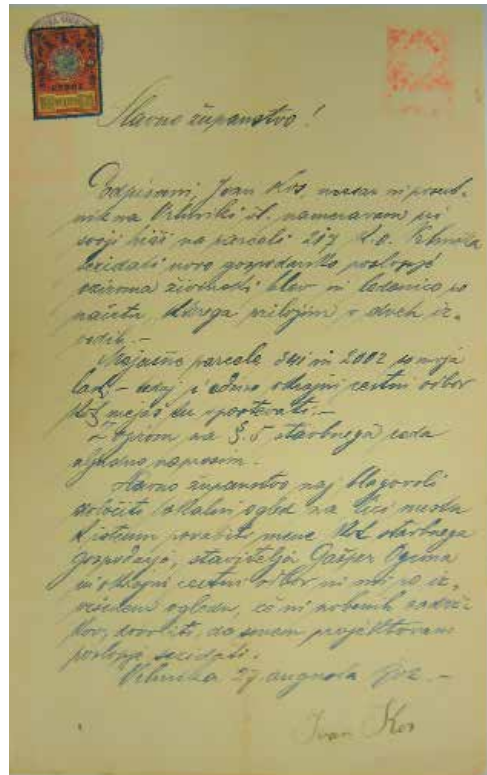 Slavno županstvo!
Podpisani, Ivan Kos, mesar in posest-
nik na Vrhniki št. nameravam pri
svoji hiši na parceli 217 k.o. Vrhnika
sezidati novo gospodarsko poslopje
oziroma živinski hlev in ledenico po
načrtu, kterega priložim v dveh iz-
vodih.-
Mejašne parcele 341 in 2002 so moja
last,- sedaj je edino okrajni cestni odbor
kot mejaš tu upoštevati.-
Z ozirom na §. 5 stavbnega reda
uljudno naprosim.
Slavno županstvo naj blagovoli
določiti lokalni ogled na lici mesta
k istemu povabiti mene kot stavbnega
gospodarja, stavitelja Gašper Ogrina
in okrajni cestni odbor in mi po iz-
vršenem ogledu, če ni nobenih zadrž-
kov, dovoliti, da smem projektovano
poslopje sezidati.
Vrhnika 27 avgusta
Ivan Kos